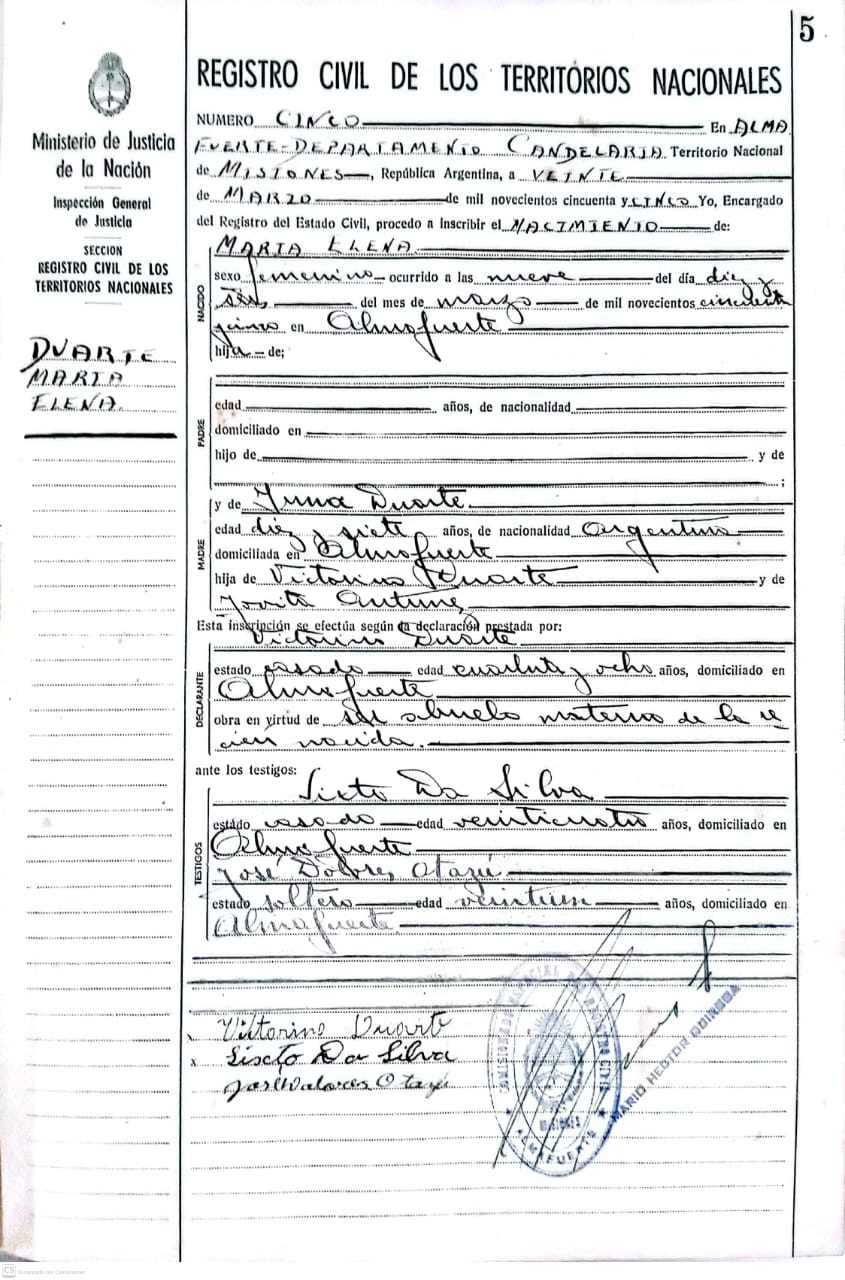 5
Ministerio de Justicia
de la Nación
Inspección General
de Justicia
SECCION
REGISTRO CIVIL DE LOS
TERRITORIOS NACIONALES
DUARTE
MARIA
ELENA.
REGISTRO CIVIL DE LOS TERRITORIOS NACIONALES
NUMERO CINCO En ALMA
FUERTE-DEPARTAMENTO CANDELARIA Territorio Nacional
de MISIONES, República Argentina, a VEINTE
de MARZO de mil novecientos cincuenta y CINCO Yo, Encargado
del Registro del Estado Civil, procedo a inscribir el NACIMIENTO de:
NACIDO
MARIA ELENA.
sexo femenino ocurrido a las nueve del día diez y
seis del mes de marzo de mil novecientos cincuenta
cinco en Almafuerte
hija de;
PADRE
edad años, de nacionalidad
domiciliado en
hijo de y de
;
MADRE
y de Duarte
edad diez y siete años, de nacionalidad Argentina
domiciliada en Almafuerte
hija de Victorino Duarte y de
Jovita Antunez
Esta inscripción se efectúa según la declaración prestada por:
DECLARANTE
Victorino Duarte
estado casado edad cuarenta y ocho años, domiciliado en
Almafuerte
obra en virtud de ser abuelo materno de la re
cién nacida.
ante los testigos:
TESTIGOS
Sixto Da Silva
estado casado edad veinticuatro años, domiciliado en
Almafuerte
José Dolores Otazú
estado soltero edad veintiun años, domiciliado en
Almafuerte
Vittorino Duarte
x Siscto Da Silva
Otazu
REGISTRO CIVIL
MISIONES
ALMAFUERTE
MARIO HECTOR
CS Escaneado con CamScanner